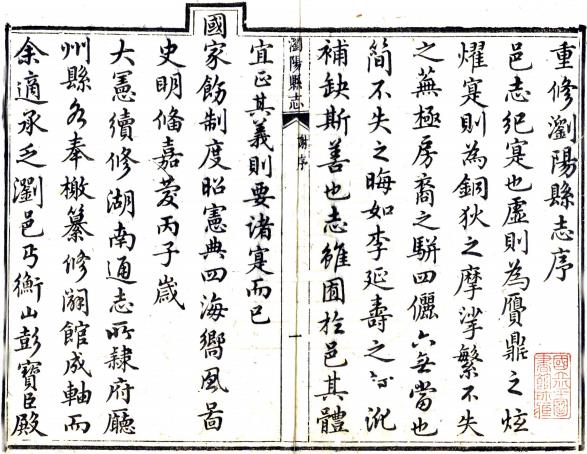 重修瀏陽縣志序
邑志紀寔也虛則為贋鼎之炫
燿寔則為銅狄之摩挲繁不失
之蕪極房裔之駢四儷六無當也
簡不失之晦如李延壽之
補缺斯善也志雖囿於邑其體
瀏陽縣志
謝序
一
宜正其義則要諸寔而已
國家飭制度昭憲典四海嚮風
史明備嘉慶丙子歲
大憲續修湖南通志所隸府廳
州縣各奉檄纂修嗣館成軸而
余適承乏瀏邑丐衡山彭寶臣殿